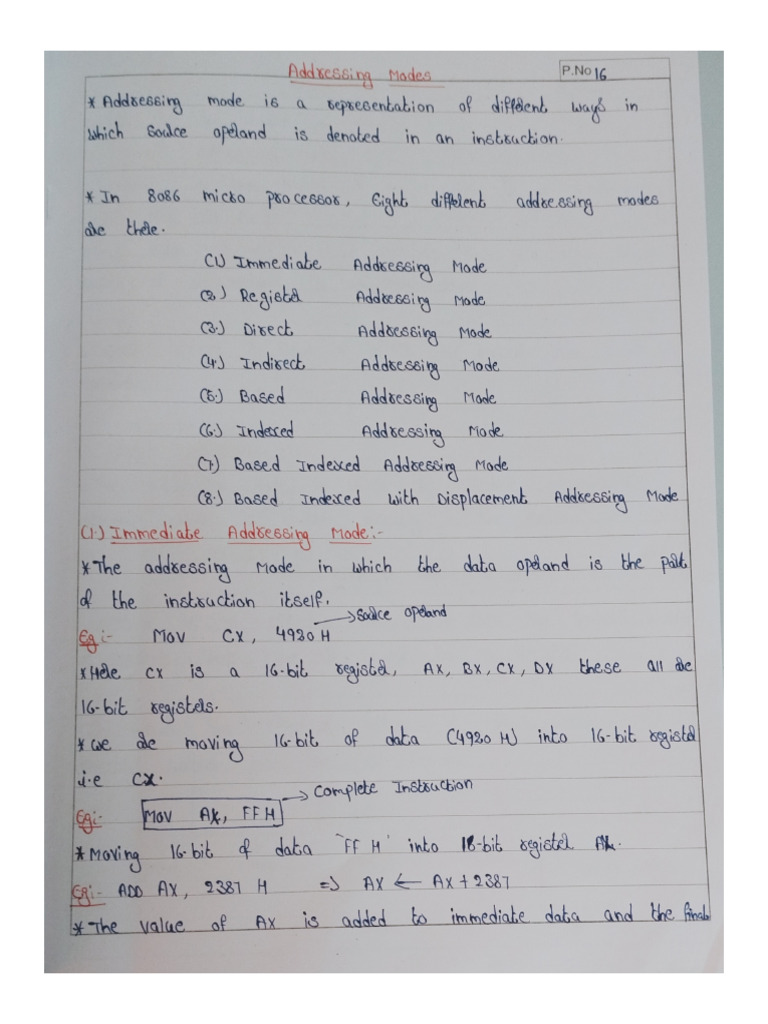 Addressing Modes
P.No 16
* Addressing mode is a representation of different ways in
which source operand is denoted in an instruction.
* In 8086 micro processor, Eight different addressing modes
are there.
(1) Immediate Addressing Mode
(2.) Register Addressing Mode
(3.) Direct Addressing Mode
(4.) Indirect Addressing Mode
(5.) Based Addressing Mode
(6.) Indexed Addressing Mode
(7) Based Indexed Addressing Mode
(8.) Based Indexed with Displacement Addressing Mode
(1.) Immediate Addressing Mode:-
* The addressing Mode in which the data operand is the part
of the instruction itself.
→ source operand
Eg:- Mov CX, 4930 H
* Here CX is a 16-bit register, AX, BX, CX, DX these all are
16-bit registers.
* we are moving 16-bit of data (4930 H) into 16-bit register
i.e CX.
→ Complete Instruction
Eg:- Mov AX, FF H
* Moving 16-bit of data 'FF H' into 16-bit register AX.
Eg:- ADD AX, 2387 H => AX ← AX + 2387
* The value of AX is added to immediate data and the final